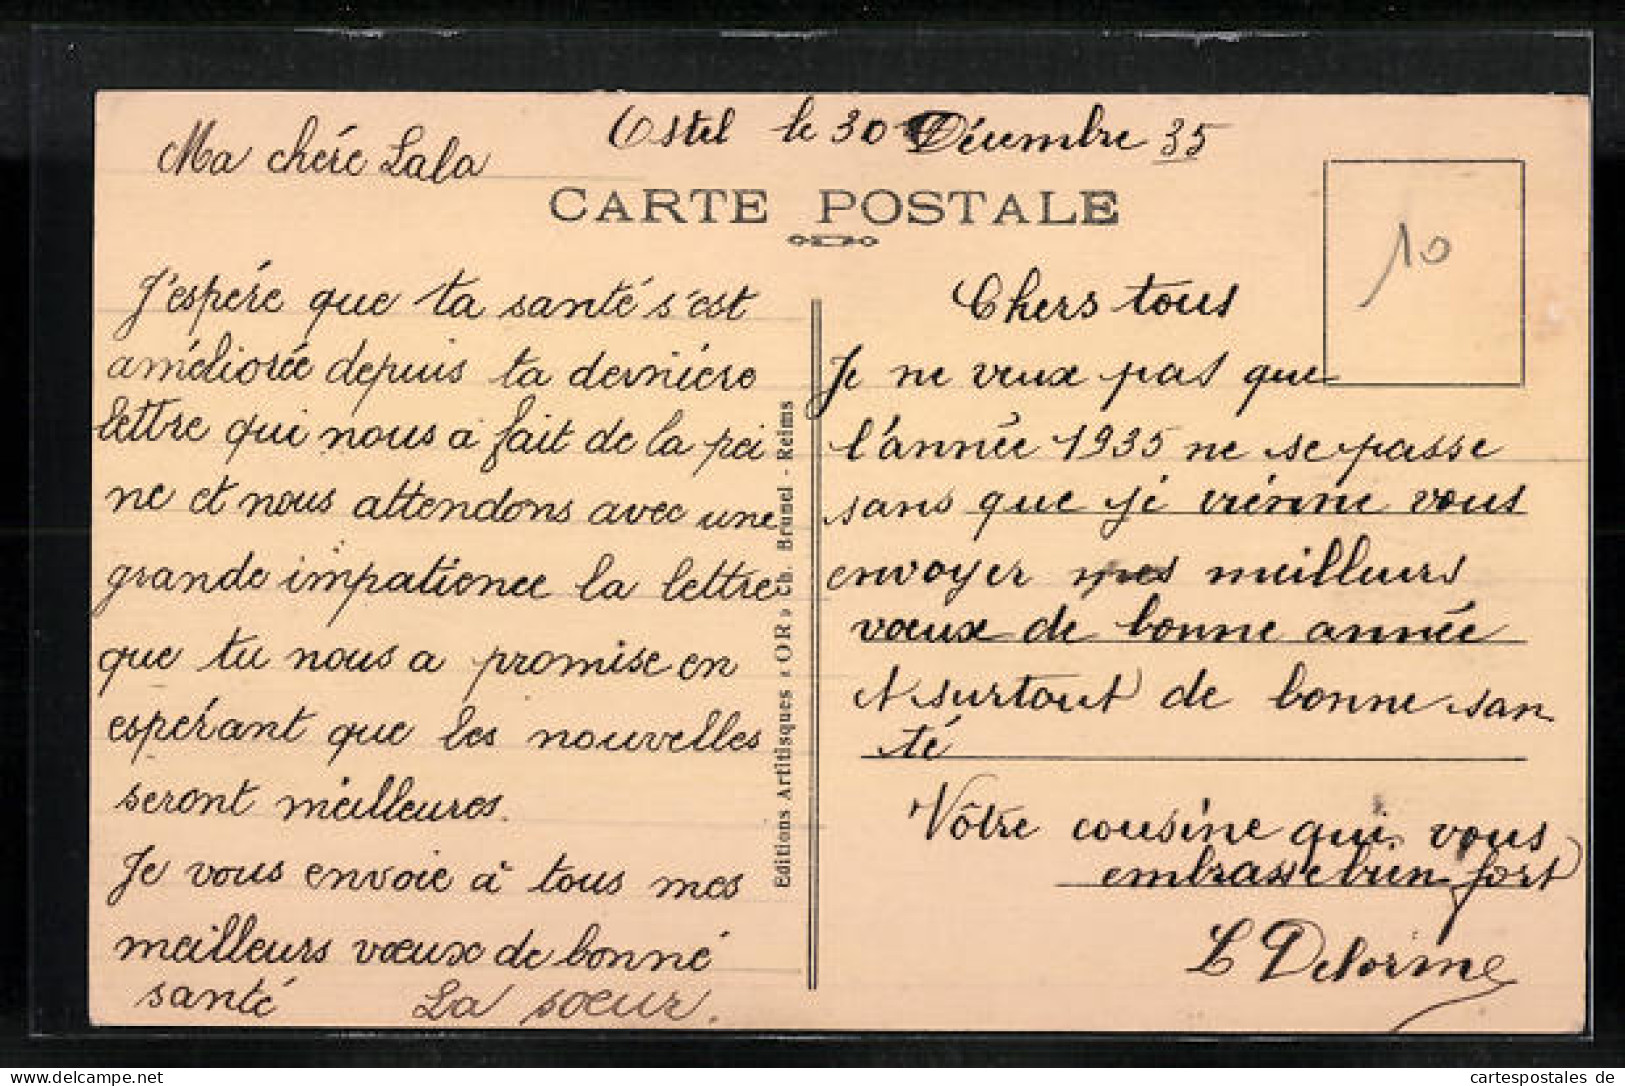 Ostel le 30 Décembre 35
Ma chére Lala
CARTE POSTALE
10
J'espére que ta santé s'est
améliorée depuis ta derniére
lettre qui nous a fait de la pei
ne et nous attendons avec une
grande impatience la lettre
que tu nous a promise en
espérant que les nouvelles
seront meilleures.
Je vous envoie à tous mes
meilleurs vœux de bonne
santé
La sœur.
Editions Artitisques « OR » Ch. Brunel - Reims
Chers tous
Je ne veux pas que
l'année 1935 ne se passe
sans que je vienne vous
envoyer mes meilleurs
vœux de bonne année
et surtout de bonne san
té
Vôtre cousine qui vous
embrasse bien fort
L Delorme
cartespostales de